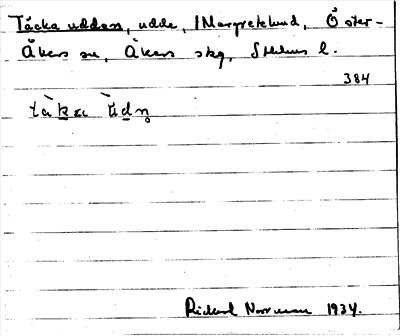 Täcka udden, udde, Margretelund, Öster-
Åkers sn, Åkers skg, Sthlms l.
384
Rickard Norrman 1934.